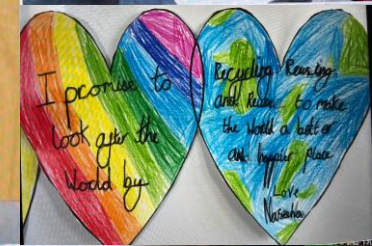 I promise to
look after the
World by
Recycling Reusing
and Reduce to make
the World a better
and happier place
Love